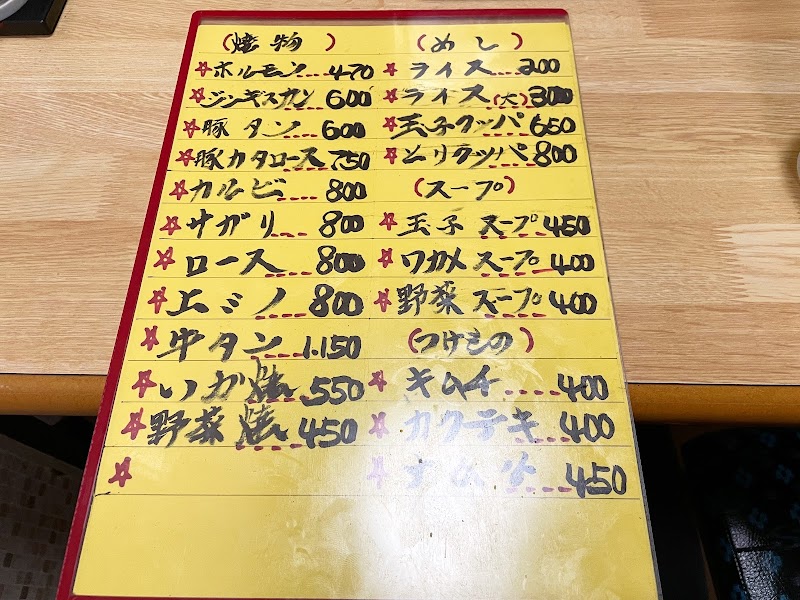 (焼物)
☆ホルモン...470
☆ジンギスカン...600
☆豚タン...600
☆豚カタロース...750
☆カルビ...800
☆サガリ...800
☆ロース...800
☆上ミノ...800
☆牛タン...1.150
☆いか焼...550
☆野菜焼...450
☆
(めし)
☆ライス...200
☆ライス(大)300
☆玉子クッパ650
☆とりクッパ800
(スープ)
☆玉子スープ450
☆ワカメスープ400
☆野菜スープ400
(つけもの)
☆キムチ....400
☆カクテキ...400
☆...450